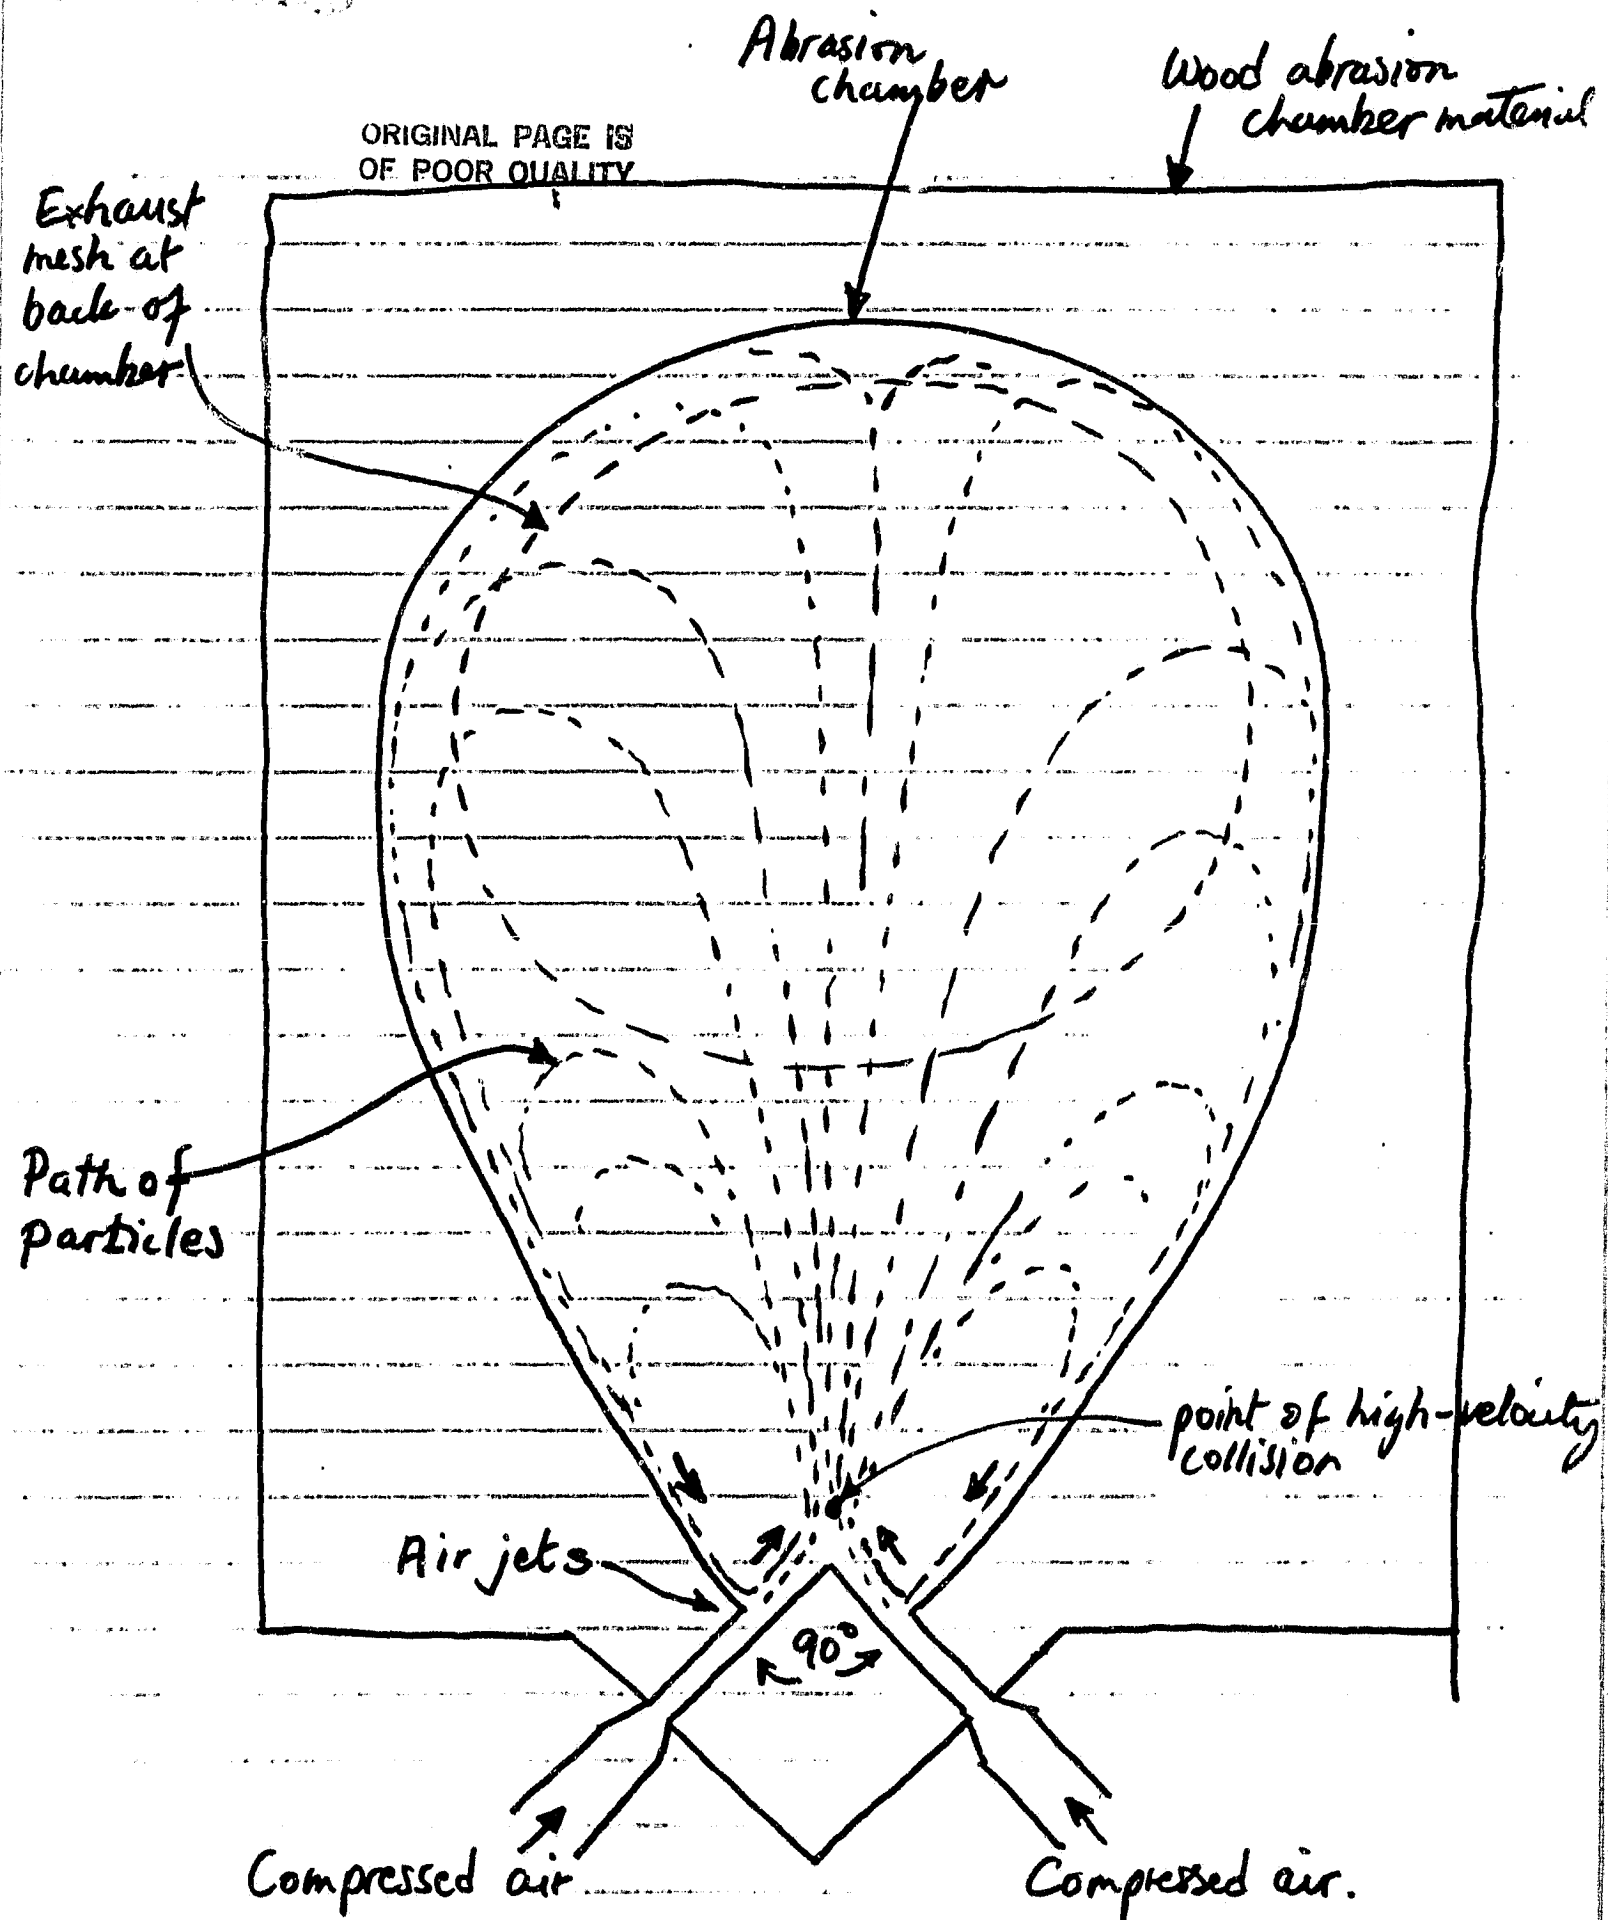 Abrasion
chamber
Wood abrasion
chamber material
ORIGINAL PAGE IS
OF POOR QUALITY
Exhaust
mesh at
back of
chamber
Path of
particles
point of high-velocity
collision
Air jets
90°
Compressed air
Compressed air.